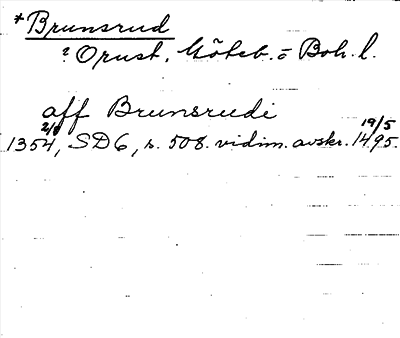 *Brunsrud
? Orust, Göteb. o Boh. l.
aff Brunsrudi
1354, SD6, s. 508. vidim. avskr. 19/5 1495.